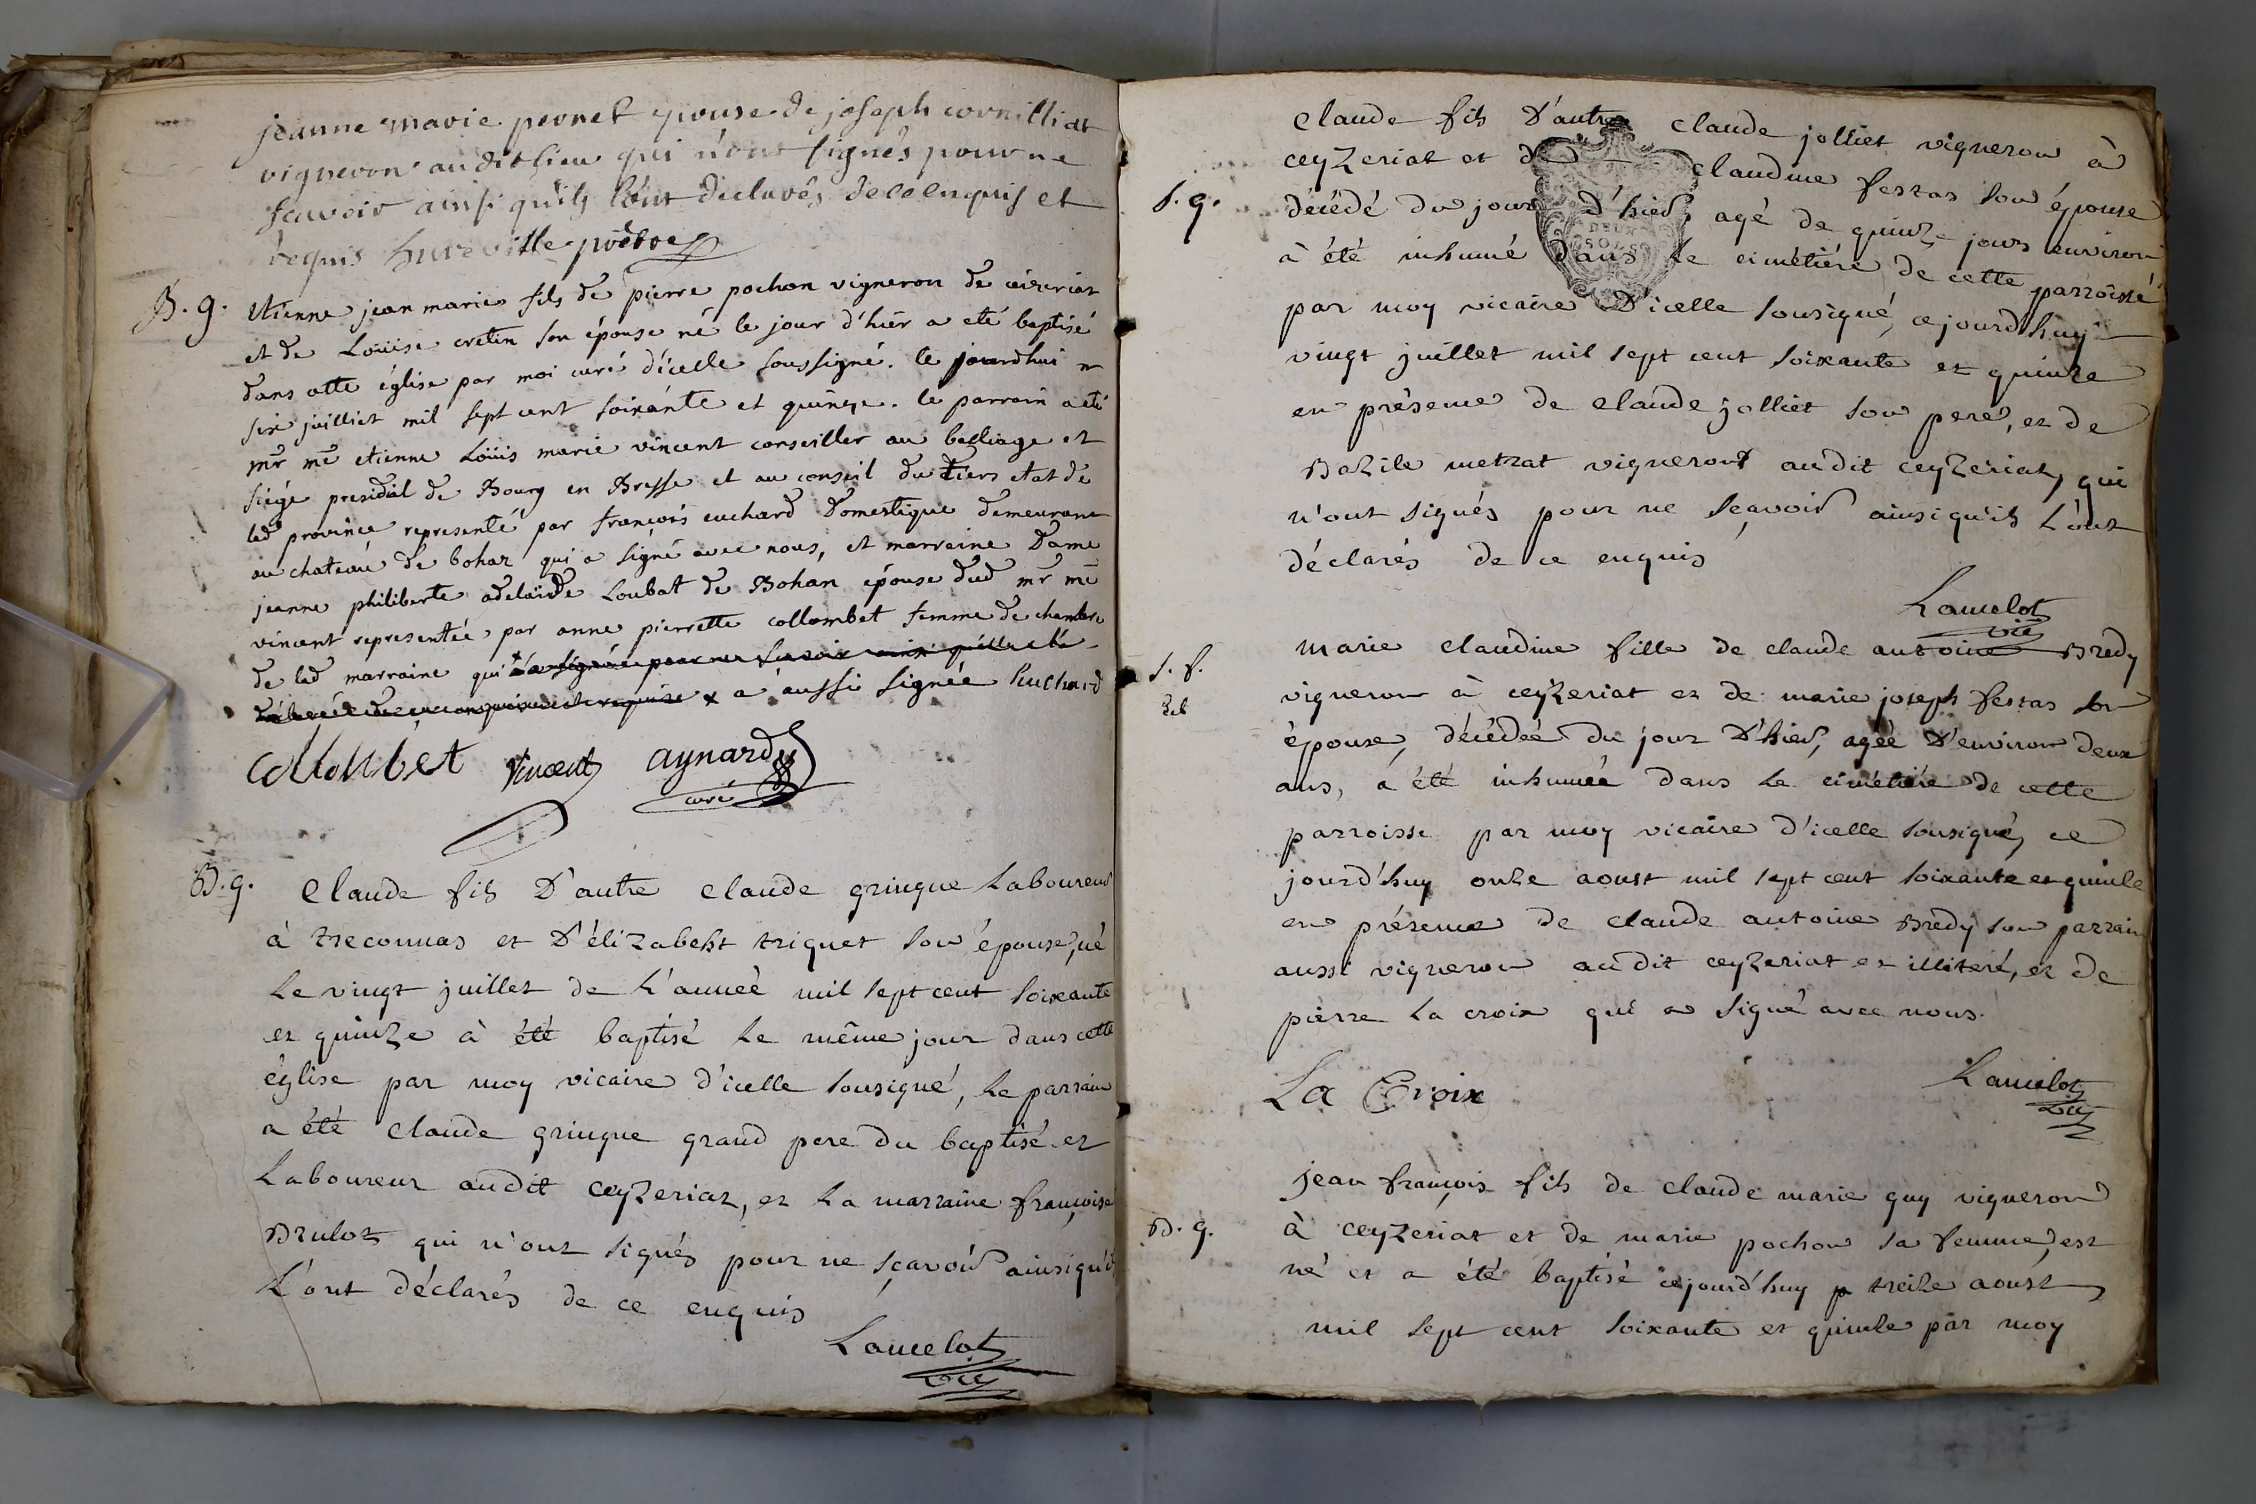 jeanne marie pernet epouse de joseph cornilliat
vigneron audit lieu qui n'ont signés pour ne
scavoir ainsi qu'ils l'ont déclarés de ce enquis et
requis hureville prêtre
B. g. etienne jean marie fils de pierre pochon vigneron de ceizeriat
et de Loüise cretin son épouse né le jour d'hier a eté baptisé
dans cette église par moi curé d'icelle soussigné. le jourdhui
six juilliet mil sept cent soixante et quinze. le parrain a eté
mr me etienne Loüis marie vincent conseiller au balliage et
siége presidial de Bourg en Bresse et au conseil du tiers etat de
lad province representé par françois euchard Domestique demeurant
au chateau de bohaz qui a signé avec nous, et marraine Dame
jeanne philiberte adelaïde Loubat de Bohan épouse dud mr me
vincent representée par anne pierrette collombet femme de chambre
de lad marraine qui n'a signée pour ne scavoir ainsi qu'elle l'a
déclarée de ce enquise et requise x a aussi signée Euchard
Collombet vincent aynard
curé
B. g. Claude fils D'autre claude gringue Laboureur
à treconnas et D'élizabeht triquet son épouse, né
le vingt juillet de L'anneé mil sept cent soixante
et quinze à été baptisé le même jour dans cette
église par moy vicaire d'icelle sousigné, le parrain
a été claude gringue grand pere du baptisé et
Laboureur audit ceyzeriat, et la marraine françoise
Brulot qui n'ont signés pour ne sçavoir ainsiqu'ils
L'ont déclarés de ce enquis
Lancelot
vic
Claude fils D'autre claude jolliet vigneron à
ceyzeriat et de claudine festas son épouse
S. g. décédé du jour d'hier, agé de quinze jours environ
DEUX
SOLS
à été inhumé dans le cimétiére de cette parroisse
par moy vicaire D'icelle sousigné, ce jourd'huy
vingt juillet mil sept cent soixante et quinze
en présence de claude jolliet son pere, et de
Bazile metrat vigneront audit ceyzeriat, qui
n'ont signés pour ne sçavoir ainsiqu'ils L'ont
déclarés de ce enquis
Lancelot
vic
S. f. marie claudine fille de claude antoine Bredy
vigneron à ceyzeriat et de marie joseph festas son
épouse, décédeé du jour D'hier, agéé D'environ deux
ans, a été inhumeé dans le cimétiére de cette
parroisse par moy vicaire d'icelle sousigné, ce
jourd'huy onze aoust mil sept cent soixante et quinze
en présence de claude antoine Bredy son parrain
aussi vigneron audit ceyzeriat et illiteré, et de
pierre La croix qui a signé avec nous.
La Croix Lancelot
vic
jean françois fils de claude marie guy vigneron
B. g. à ceyzeriat et de marie pochon sa femme, est
né et a été baptisé cejourd'huy treize aoust
mil sept cent soixante et quinze par moy